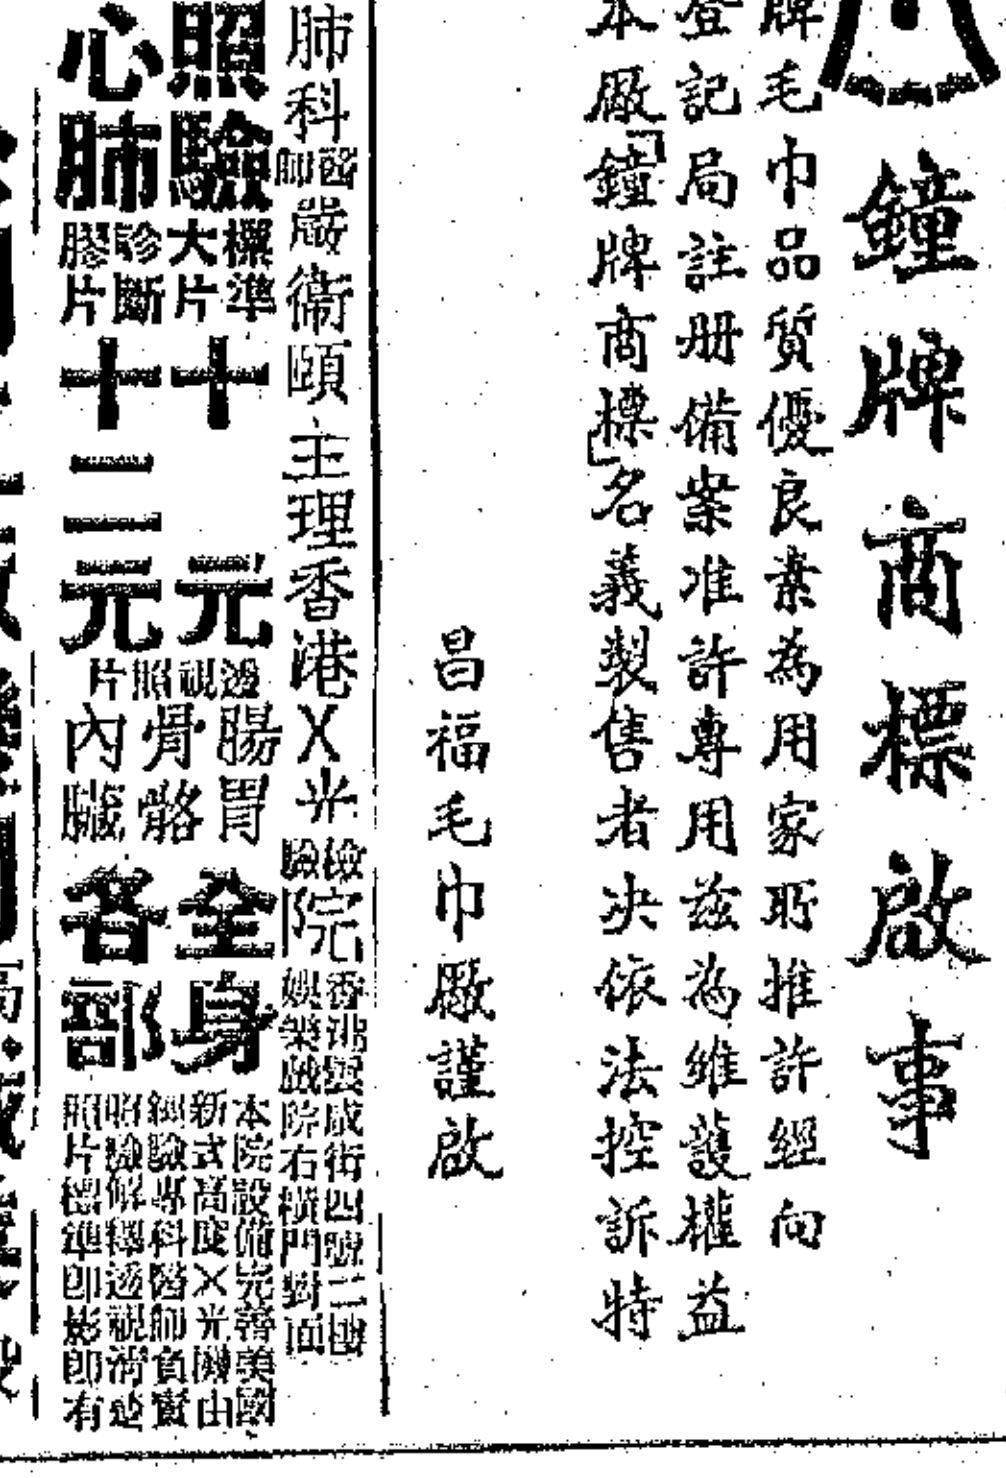 鐘牌商標啟事
牌毛巾品質優良素為用家所推許經向
登記局註册備案准許專用兹為維護權益
本廠「鐘牌商標」名義製售者决依法控訴特
昌福毛巾廠謹啟
肺科醫師嚴衞頤主理香港X光檢驗院
香港雲咸街四號二樓
娛樂戲院右橫門對面
照驗標準大片十元
心肺診斷膠片十二元
透視照片
腸胃
骨骼
內臟
全身
各部
本院設備完善美國
新式高度X光機由
經驗專科醫師負責
照驗解釋透視清楚
照片標準即影即有